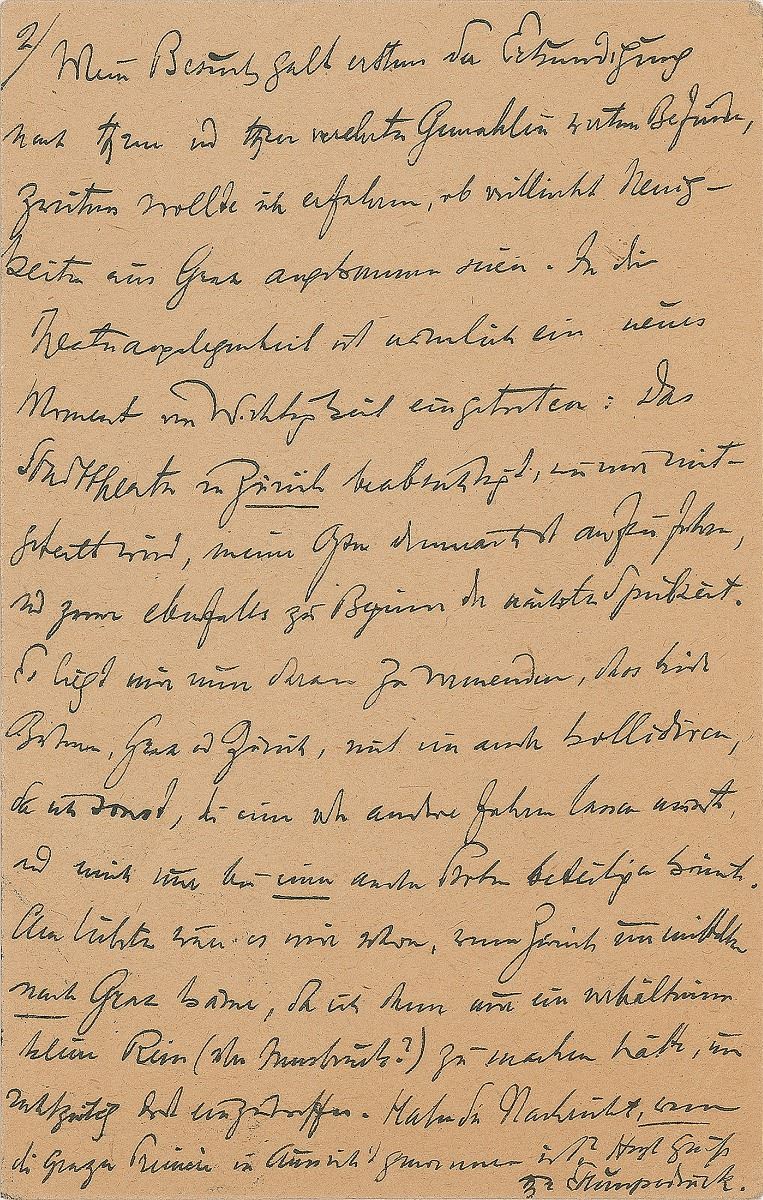 2/ Mein Besuch galt erstens der Erkundigung
nach Ihrem und Ihrer verehrten Gemahlin werten Befinden,
zweitens wollte ich erfahren, ob vielleicht Neuig-
keiten aus Graz angekommen seien. In die
Theaterangelegenheit ist nämlich ein neues
Moment von Wichtigkeit eingetreten: Das
Stadttheater in Zürich beabsichtigt, wie mir mit-
geteilt wird, meine Oper demnächst aufzuführen,
und zwar ebenfalls zu Beginn der nächsten Spielzeit.
Es liegt mir nun daran zu vermeiden, dass beide
Bühnen, Graz und Zürich, mit einander kollidieren,
da ich sonst, die eine oder andere fahren lassen müsste,
und mich nur bei einer an den Proben beteiligen könnte.
Am liebsten wäre es mir schon, wenn Zürich unmittelbar
nach Graz käme, da ich dann nur eine verhältnism
kleine Reise (über Innsbruck?) zu machen hätte, um
rechtzeitig dort einzutreffen. Haben Sie Nachricht, wann
die Grazer Premiere in Aussicht genommen ist? Herzl Gruß
Ihr EHumperdinck.